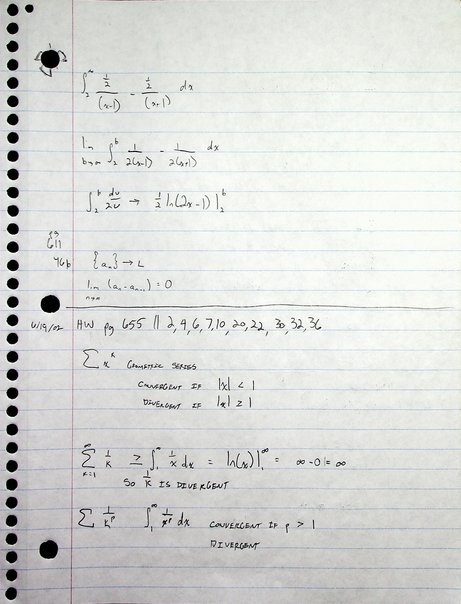 ∫₂^∞ ½/(x-1) - ½/(x+1) dx
lim b→∞ ∫₂^b 1/2(x-1) - 1/2(x+1) dx
∫₂^b du/2u → ½ ln(2x-1) |₂^b
611
46b {aₙ} → L
lim n→∞ (aₙ - aₙ₊₁) = 0
6/19/02 HW pg 655 || 2, 4, 6, 7, 10, 20, 22, 30, 32, 36
∑ xᴷ GEOMETRIC SERIES
CONVERGENT IF |x| < 1
DIVERGENT IF |x| ≥ 1
∑ K=1 ^∞ 1/K ≥ ∫₁^∞ 1/x dx = ln(x)|₁^∞ = ∞ - 0 = ∞
SO 1/K IS DIVERGENT
∑ 1/Kᵖ ∫₁^∞ 1/xᵖ dx CONVERGENT IF p > 1
DIVERGENT